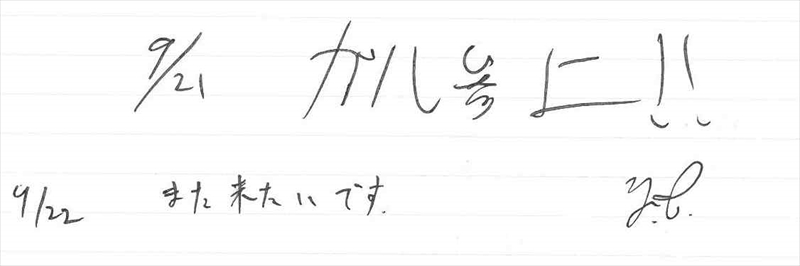 9/21 ガル参上!!
9/22 また来たいです.